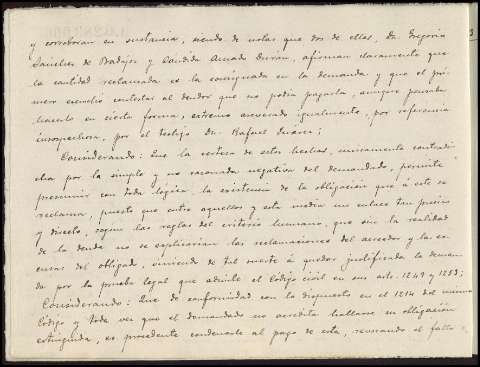 y corroboran en sustancia, siendo de notar que dos de ellas, Da Gregoria
Sanchez de Badajoz y Candida Amado Duran, afirman claramente que
la cantidad reclamada es la consignada en la demanda y que el pri-
mero escuchó contestar al deudor que no podia pagarla, aunque pensaba
hacerlo en cierta forma, extremo aseverado igualmente, por referencia
insospechosa, por el testigo Dn. Rafael Suárez;
Considerando: Que la certeza de estos hechos, unicamente contradi-
cha por la simple y no razonada negativa del demandado, permite
presumir con toda logica, la existencia de la obligacion que á este se
reclama, puesto que entre aquellos y esta media un enlace tan preciso
y directo, segun las reglas del criterio humano, que sin la realidad
de la deuda no se explicarian las reclamaciones del acreedor y las ex-
cusas del obligado, viniendo de tal suerte á quedar justificada la deman-
da por la prueba legal que admite el Código civil en sus arts. 1249 y 1253;
Considerando: Que de conformidad con lo dispuesto en el 1214 del mismo
Código y toda vez que el demandado no acredita hallarse su obligación
extinguida, es procedente condenarle al pago de esta, revocando el fallo